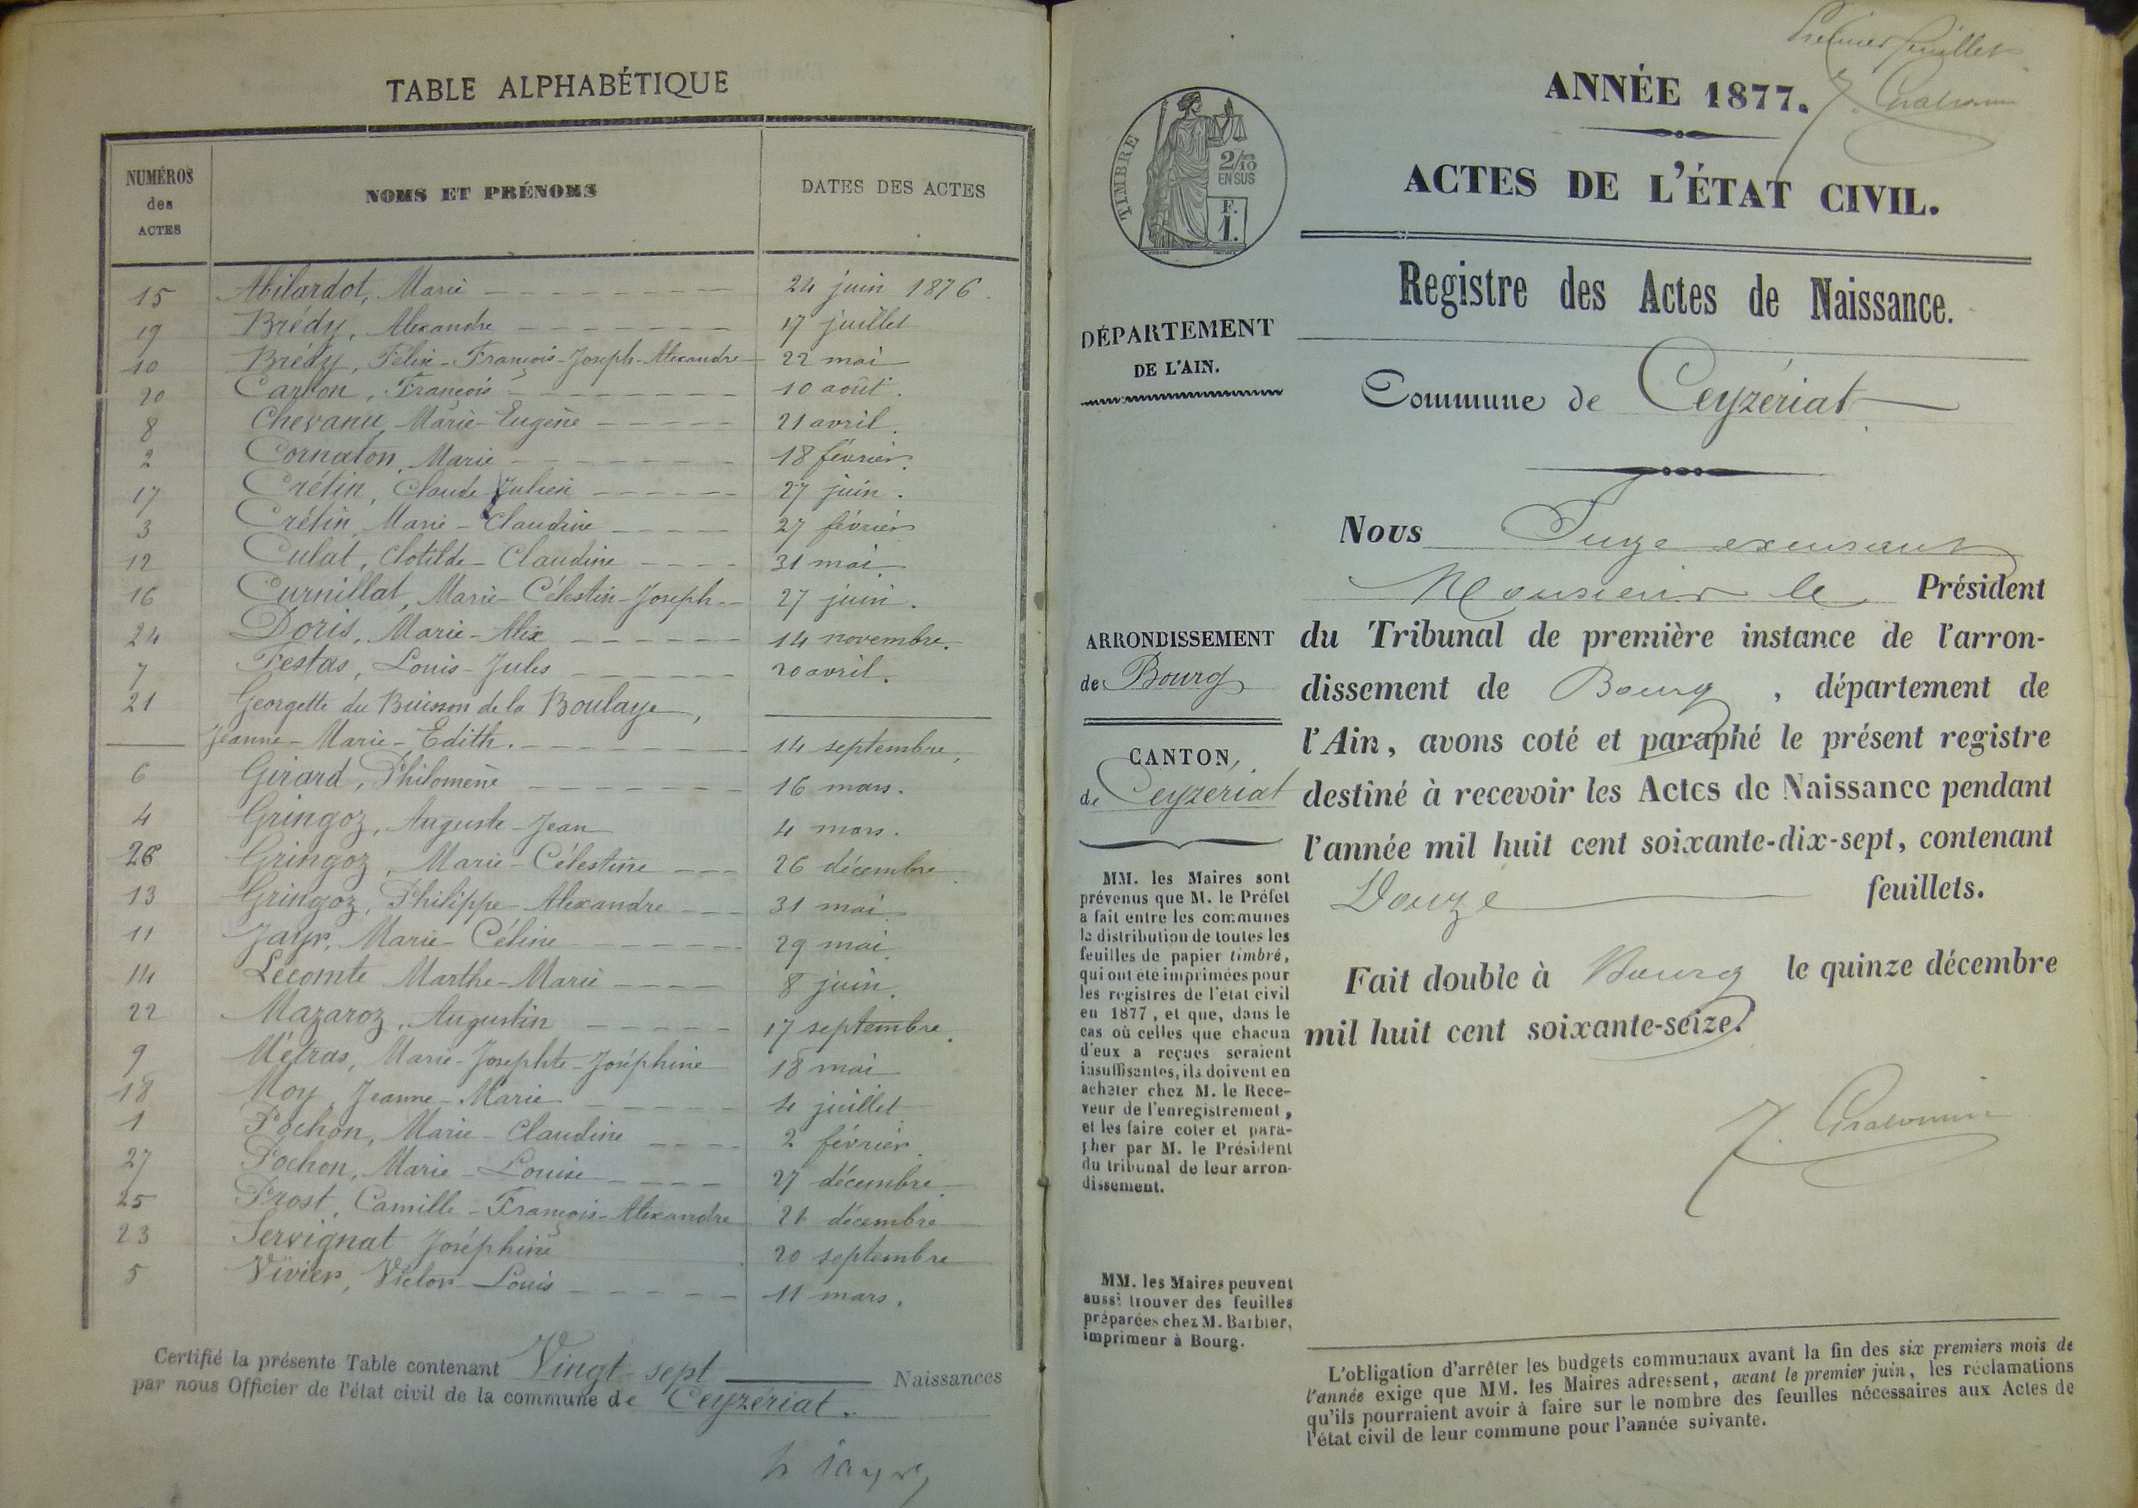 TABLE ALPHABÉTIQUE
NUMÉROS des ACTES NOMS ET PRÉNOMS DATES DES ACTES
15 Abilardot, Marie 24 juin 1876.
19 Brédy, Alexandre 17 juillet
10 Brédy, Félix-François-Joseph-Alexandre 22 mai
20 Carron, François 10 août.
8 Chevanu, Marie-Eugène 21 avril.
2 Cornaton, Marie 18 février.
17 Crétin, Claude Julien 27 juin.
3 Crétin Marie-Claudine 27 février
12 Culat, Clotilde-Claudine 31 mai
16 Curnillat, Marie-Célestin-Joseph 27 juin.
24 Doris, Marie-Alix 14 novembre.
7 Festas, Louis-Jules 20 avril.
21 Georgette du Buisson de la Boulaye,
Jeanne-Marie-Edith. 14 septembre.
6 Girard, Philomène 16 mars.
4 Gringoz, Auguste-Jean 4 mars.
26 Gringoz, Marie-Célestine 26 décembre
13 Gringoz, Philippe-Alexandre 31 mai
11 Jayr, Marie-Céline 29 mai.
14 Lecomte Marthe-Marie 8 juin.
22 Mazaroz, Augustin 17 septembre.
9 Métras, Marie-Josephte-Joséphine 18 mai
18 Moy, Jeanne-Marie 4 juillet
1 Pochon, Marie-Claudine 2 février.
27 Pochon, Marie-Louise 27 décembre.
25 Prost, Camille-François-Alexandre 21 décembre
23 Servignat Joséphine 20 septembre
5 Vivier, Victor-Louis 11 mars.
Certifié la présente Table contenant Vingt-sept Naissances
par nous Officier de l'état civil de la commune de Ceyzériat.
Premier feuillet
ANNÉE 1877.
ACTES DE L'ÉTAT CIVIL.
TIMBRE
2/10 EN SUS
F. 1.
Registre des Actes de Naissance.
DÉPARTEMENT
DE L'AIN.
Commune de Ceyzériat
Nous Juge excusant
Monsieur le Président
du Tribunal de première instance de l'arron-
dissement de Bourg, département de
l'Ain, avons coté et paraphé le présent registre
destiné à recevoir les Actes de Naissance pendant
l'année mil huit cent soixante-dix-sept, contenant
Douze feuillets.
Fait double à Bourg le quinze décembre
mil huit cent soixante-seize.
ARRONDISSEMENT
de Bourg
CANTON
de Ceyzériat
MM. les Maires sont
prévenus que M. le Préfet
a fait entre les communes
la distribution de toutes les
feuilles de papier timbré,
qui ont été imprimées pour
les registres de l'état civil
en 1877, et que, dans le
cas où celles que chacun
d'eux a reçues seraient
insuffisantes, ils doivent en
acheter chez M. le Rece-
veur de l'enregistrement,
et les faire coter et para-
pher par M. le Président
du tribunal de leur arron-
dissement.
MM. les Maires peuvent
aussi trouver des feuilles
préparées chez M. Barbier,
imprimeur à Bourg.
L'obligation d'arrêter les budgets communaux avant la fin des six premiers mois de
l'année exige que MM. les Maires adressent, avant le premier juin, les réclamations
qu'ils pourraient avoir à faire sur le nombre des feuilles nécessaires aux Actes de
l'état civil de leur commune pour l'année suivante.